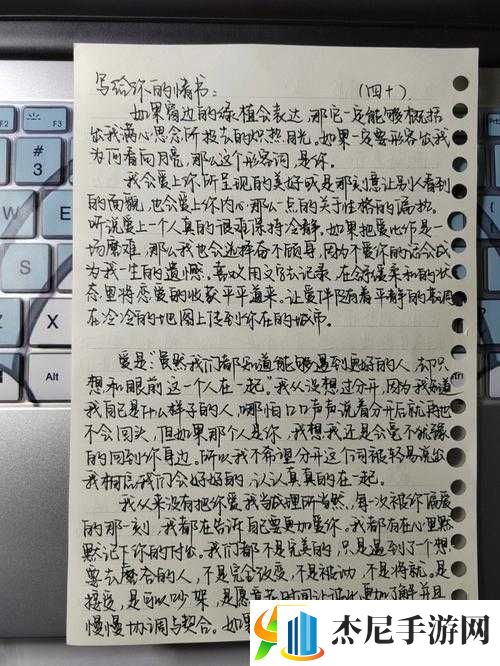 写给你的情书: (四十)
如果窗边的绿植会表达,那它一定能够概括
出我满心思念所投去的炽热目光。如果一定要形容出我
为何看向月亮,那么这个形容词,是你。
我会爱上你所呈现的美好或是那刻意让别人看到
的面貌,也会爱上你内心那么一点的关于性格的偏执。
听说爱上一个人真的很难保持冷静,如果把爱比作是一
场磨难,那么我也会选择奋不顾身,因为不爱你的话会成
为我一生的遗憾。喜欢用文字去记录,在舒缓柔和的状
态里将恋爱的收获平平道来。让爱伴随着平静的基调
在冷冷的地图上传到你在的城市。
爱是“虽然我们都知道能够遇到更好的人,却只
想和眼前这一个人在一起”。我从没想过分开,因为我知道
我自己是什么样子的人,哪怕口口声声说着分开后就再也
不会回头,但如果那个人是你,我想我还是会毫不犹豫
的回到你身边。所以我不希望分开这个词被轻易说出
我相信我们会好好的,认认真真的在一起。
我从来没有把你爱我当成理所当然,每一次被你偏爱
的那一刻,我都在告诉自己要更加爱你。我都有在心里默
默记下你的付出。我们都不是完美的,只是遇到了个想
要去磨合的人,不是完全改变,不是被动,不是将就。是
接受,是可以吵架,是愿意花时间让彼此更加了解并且
慢慢协调与契合。如果
杰尼手游网
F2
F3
#
3